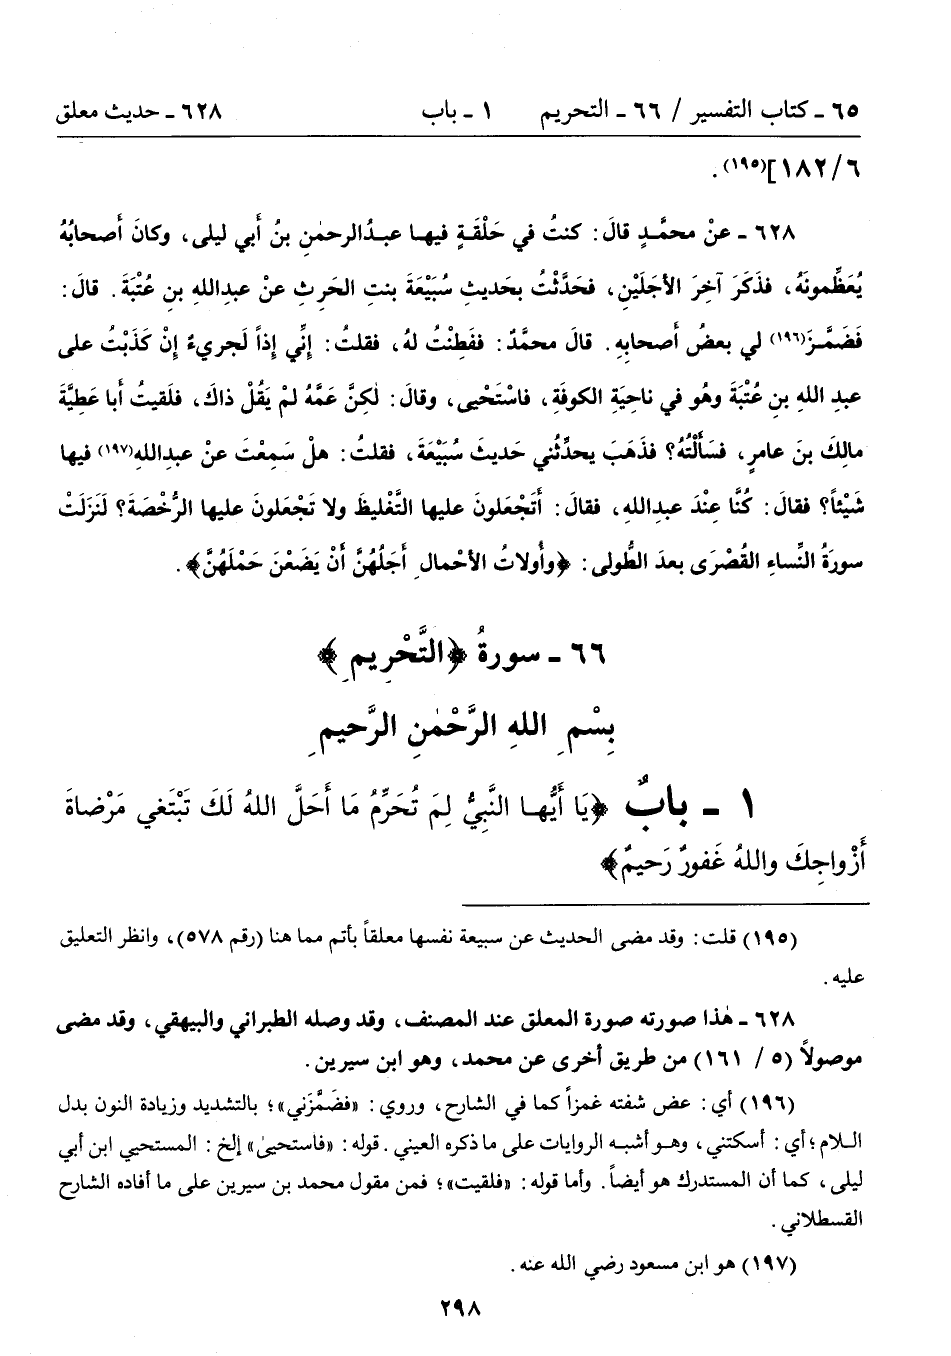 ٦٥ ـ كتاب التفسير / ٦٦ ـ التحريم ١ ـ باب ٦٢٨ ـ حديث معلق
٦/ ١٨٢](١٩٥).
٦٢٨ ـ عنْ محمَّدٍ قالَ: كنتُ في حَلْقَةٍ فيها عبدُالرحمٰنِ بنُ أَبي ليلى، وكانَ أَصحابُهُ
يُعَظِّمونَهُ، فذَكَرَ آخِرَ الأجَلَيْنِ، فحَدَّثْتُ بحَديثِ سُبَيْعَةَ بنتِ الحَرثِ عنْ عبدِاللهِ بنِ عُتْبَةَ. قالَ:
فَضَمَّزَ(١٩٦) لي بعضُ أَصحابِهِ. قالَ محمَّدٌ: ففَطِنْتُ لهُ، فقلتُ: إِنِّي إِذاً لَجريءٌ إِنْ كَذَبْتُ على
عبدِ اللهِ بنِ عُتْبَةَ وهُو في ناحيَةِ الكوفَةِ، فاسْتَحْيى، وقالَ: لٰكِنَّ عَمَّهُ لمْ يَقُلْ ذاكَ، فلَقيتُ أَبا عَطِيَّةَ
مالِكَ بنَ عامرٍ، فسَأَلْتُهُ؟ فذَهَبَ يحدِّثُني حَديثَ سُبَيْعَةَ، فقلتُ: هلْ سَمِعْتَ عنْ عبدِاللهِ(١٩٧) فيها
شَيْئاً؟ فقالَ: كُنَّا عِنْدَ عبدِاللهِ، فقالَ: أَتَجْعَلونَ عليها التَّغْليظَ ولا تَجْعَلونَ عليها الرُّخْصَةَ؟ لَنَزَلَتْ
سورَةُ النِّساءِ القُصْرَى بعدَ الطُّولى: ﴿وأُولاتُ الأحْمالِ أَجَلُهُنَّ أَنْ يَضَعْنَ حَمْلَهُنَّ﴾.
٦٦ ـ سورةُ ﴿التَّحْريمِ﴾
بِسْمِ اللهِ الرَّحْمٰنِ الرَّحيمِ
١ ـ بابٌ ﴿يَا أَيُّها النَّبِيُّ لِمَ تُحَرِّمُ مَا أَحَلَّ اللهُ لَكَ تَبْتَغي مَرْضاةَ
أَزْواجِكَ واللهُ غَفورٌ رَحيمٌ﴾
(١٩٥) قلت: وقد مضى الحديث عن سبيعة نفسها معلقاً بأتم مما هنا (رقم ٥٧٨)، وانظر التعليق
عليه.
٦٢٨ ـ هٰذا صورته صورة المعلق عند المصنف، وقد وصله الطبراني والبيهقي، وقد مضى
موصولاً (٥ / ١٦١) من طريق أخرى عن محمد، وهو ابن سيرين.
(١٩٦) أي: عض شفته غمزاً كما في الشارح، وروي: «فضَمَّزَني»؛ بالتشديد وزيادة النون بدل
اللام؛ أي: أسكتني، وهو أشبه الروايات على ما ذكره العيني. قوله: «فاستحيىٰ» إلخ: المستحيي ابن أبي
ليلى، كما أن المستدرك هو أيضاً. وأما قوله: «فلقيت»؛ فمن مقول محمد بن سيرين على ما أفاده الشارح
القسطلاني.
(١٩٧) هو ابن مسعود رضي الله عنه.
٢٩٨